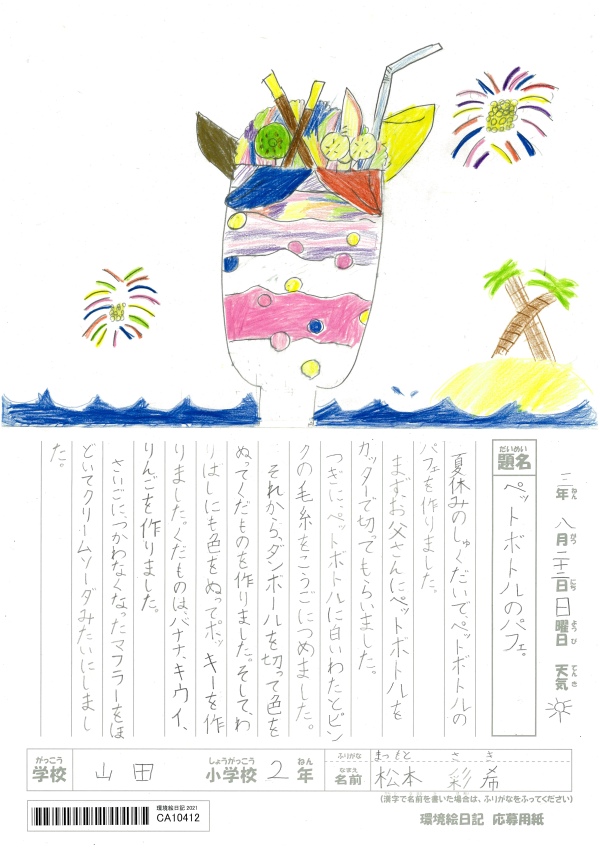 三年八月二十二日日曜日天気
ねんがつにちようびてんき
だいめい
題名
ペットボトルのパフェ。
夏休みのしゅくだいでペットボトルの
パフェを作りました。
まずお父さんにペットボトルを
カッターで切ってもらいました。
つぎに、ペットボトルに白いわたとピン
クの毛糸をこうごにつめました。
それから、ダンボールを切って色を
ぬってくだものを作りました。そして、わ
りはしにも色をぬってポッキーを作
りました。くだものは、バナナ、キウイ、
りんごを作りました。
さいごにつかわなくなったマフラーをほ
どいてクリームソーダみたいにしまし
た。
がっこう しょうがっこう ねん
学校 山田 小学校 2年
ふりがな まつもと さき
なまえ
名前 松本 彩希
(漢字で名前を書いた場合は、ふりがなをふってください)
環境絵日記 2021
CA10412
環境絵日記 応募用紙